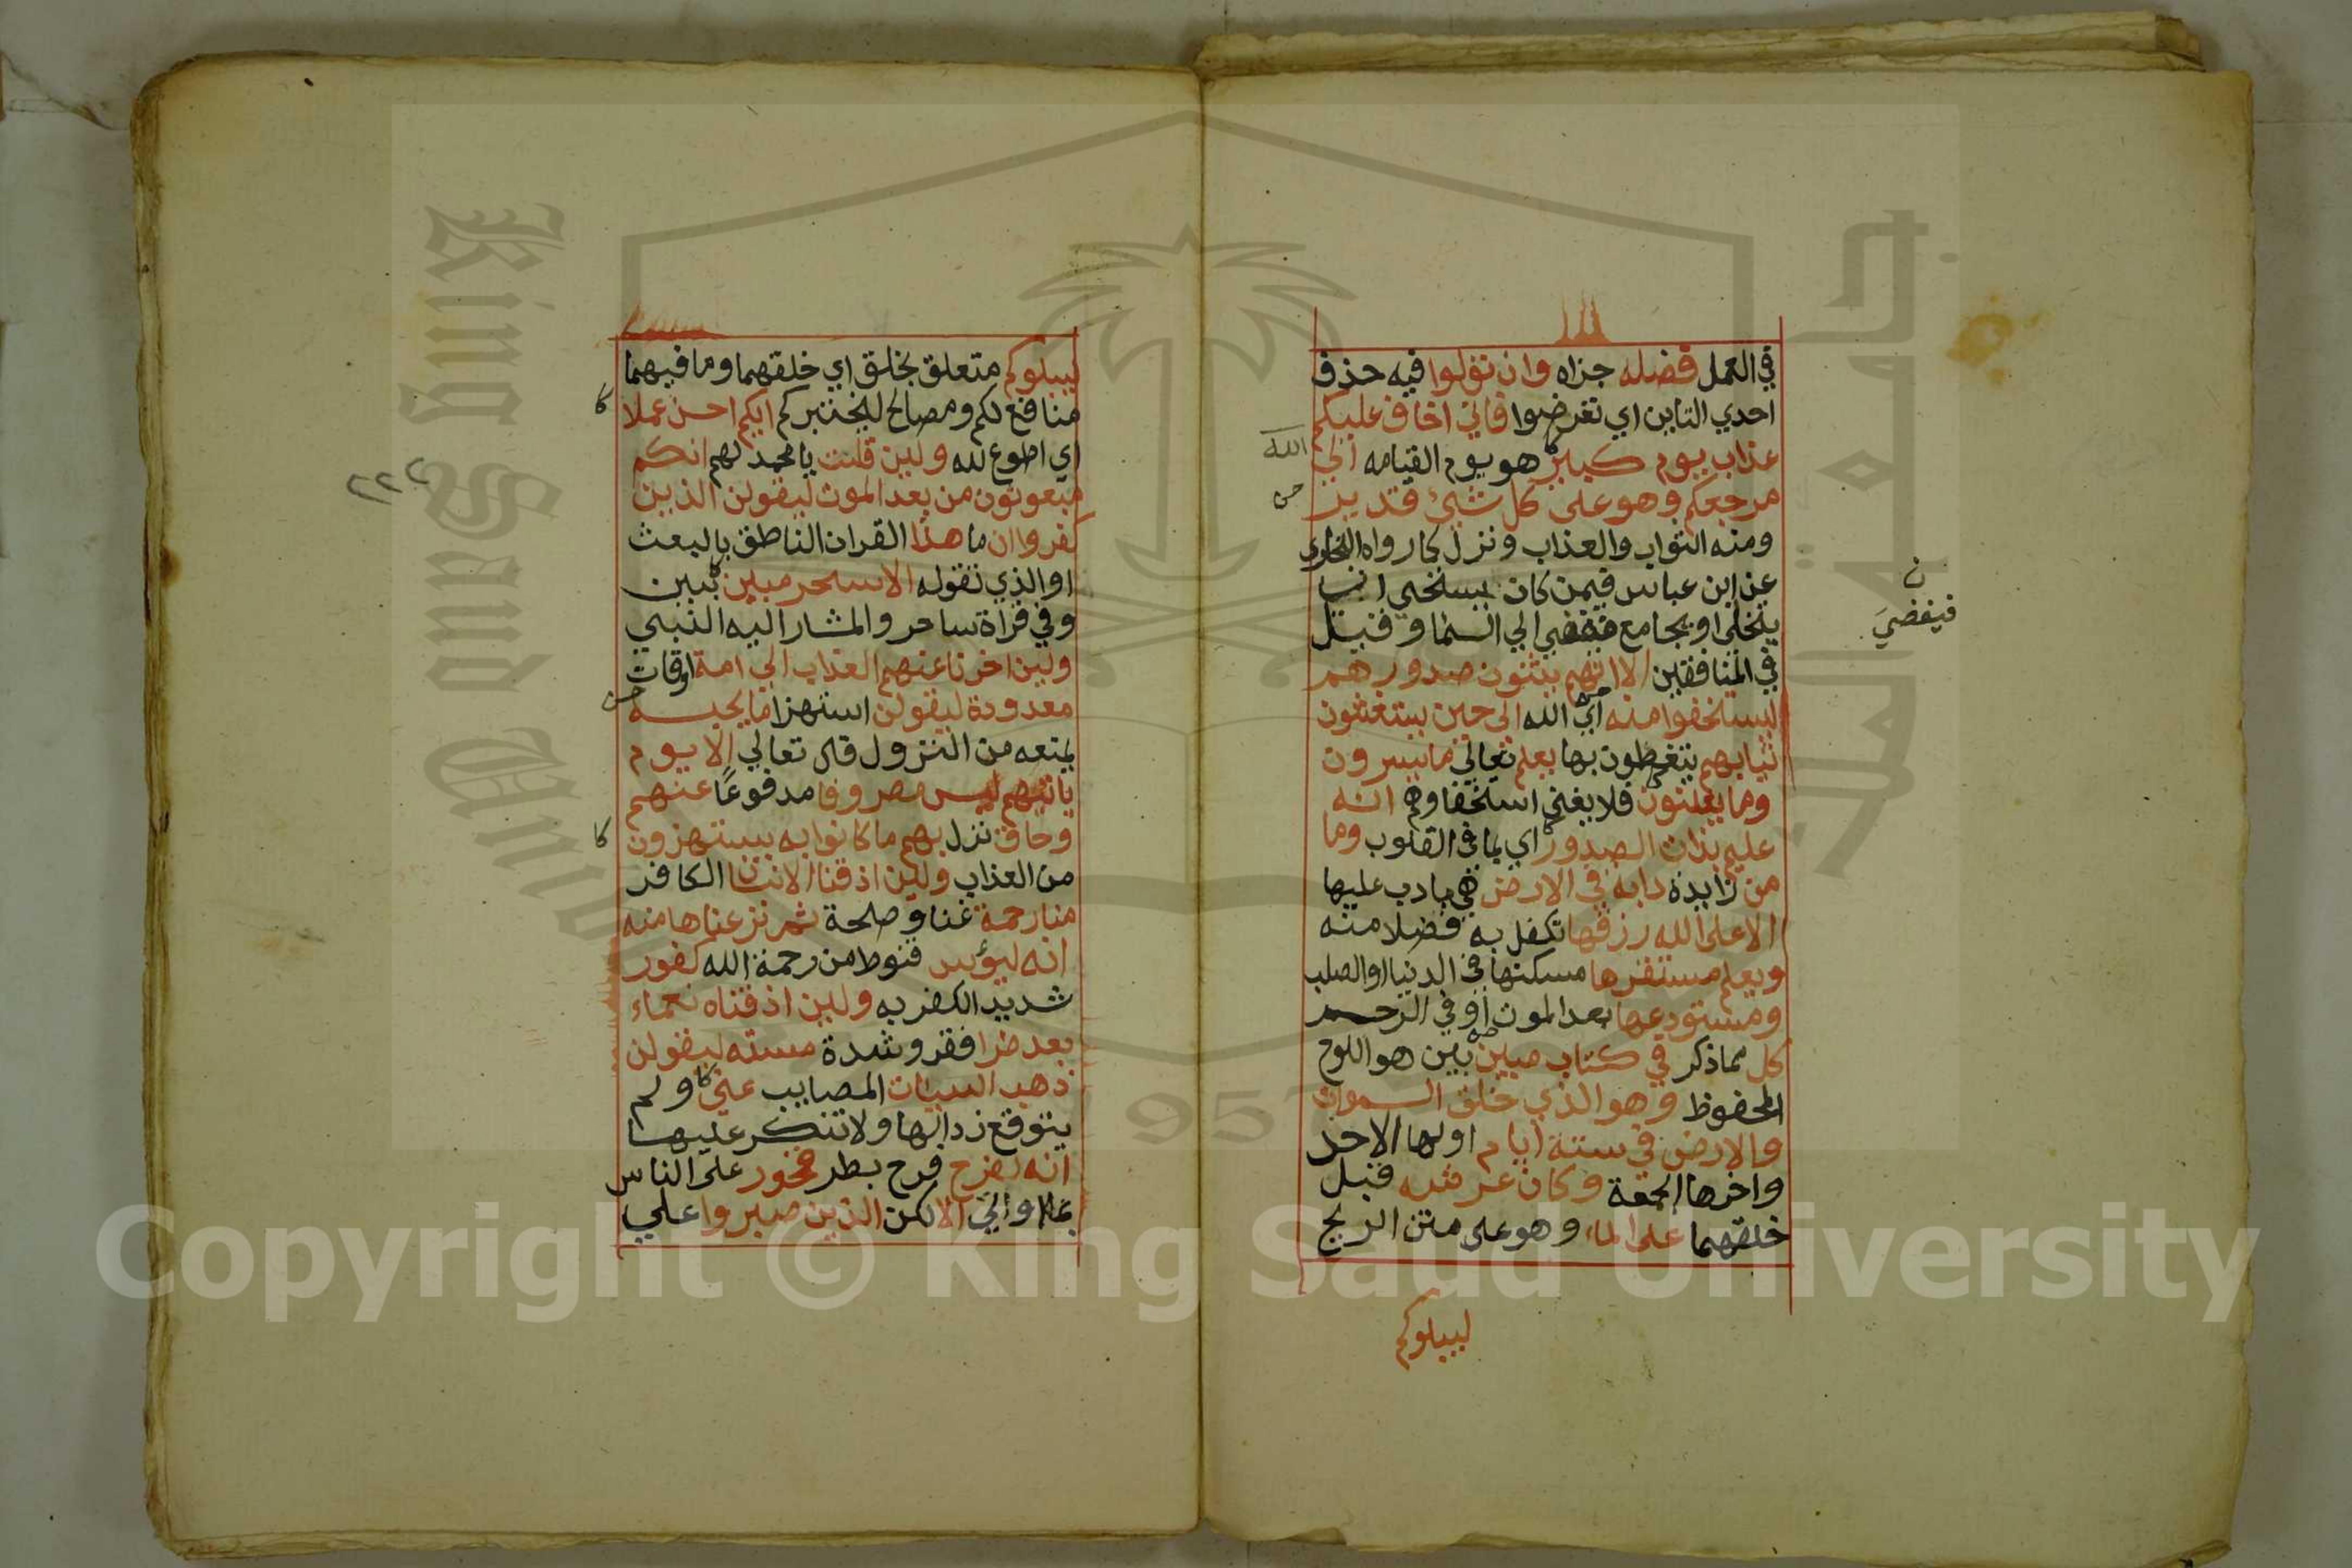 في العمل فضله جزاه وان تولوا فيه حذف
احدي التاين اي تعرضوا فاني اخاف عليكم
عذاب يوم كبير هو يوم القيامه الي
الله
مرجعكم وهو على كل شئ قدير
ومنه الثواب والعذاب ونزل كما رواه البخاري
عن ابن عباس فيمن كان يستخي ان
يتخلى او يجامع فيفضي الي السما وقيل
ن
فيفضي
في المنافقين الا انهم يثنون صدورهم
ليستخفوا منه اي الله الى حين يستغشون
ثيابهم يتغطون بها يعلم تعالي ما يسرون
وما يعلنون فلا يغني استخفاوهم انه
عليم بذات الصدور اي بما في القلوب وما
من زايدة دابة في الارض هي ما دب عليها
الا على الله رزقها تكفل به فضلا منه
ويعلم مستقرها مسكنها في الدنيا او الصلب
ومستودعها بعد الموت او في الرحم
كل مما ذكر في كتاب مبين بين هو اللوح
المحفوظ وهو الذي خلق السموات
والارض في ستة ايام اولها الاحد
واخرها الجمعة وكان عرشه قبل
خلقهما على الماء وهو على متن الريح
ليبلوكم
ليبلوكم متعلق بخلق اي خلقهما وما فيهما
منافع لكم ومصالح ليختبركم ايكم احسن عملا
اي اطوع لله ولين قلت يا محمد لهم انكم
٢٢٢
مبعوثون من بعد الموت ليقولن الذين
كفروا ان ما هذا القران الناطق بالبعث
او الذي تقوله الا سحر مبين بين
وفي قراة ساحر والمشار اليه النبي
ولين اخرنا عنهم العذاب الي امة اوقات
معدودة ليقولن استهزا ما يحبسه
يمنعه من النزول قال تعالي الا يوم
ياتيهم ليس مصروفا مدفوعًا عنهم
وحاق نزل بهم ما كانوا به يستهزون
من العذاب ولين اذقنا الانسان الكافر
منا رحمة غنا وصلحة ثم نزعناها منه
انه ليؤس قنوط من رحمة الله كفور
شديد الكفر به ولين اذقناه نعماء
بعد ضرا فقر وشدة مسته ليقولن
ذهب السيات المصايب عني ولم
يتوقع زوالها ولا تنكر عليها
انه لفرح فرح بطر فخور على الناس
بما اوتي الا لكن الذين صبروا علي
Copyright © King Saud University
King Saud University
1957